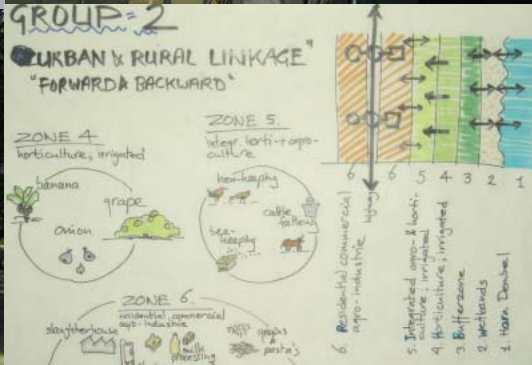 GROUP=2
"URBAN & RURAL LINKAGE"
"FORWARD & BACKWARD"
ZONE 4.
horticulture; irrigated
banana
grape
onion
ZONE 5.
integr. horti- + agro-
culture
hen-keephy
cattle
bee-
keephy
ZONE 6.
residential, commercial
agro-industrie
slaughterhouse
milk
processing
grapes
pasta's
6 6 5 4 3 2 1
6. Residential commercial
agro-industrie
5. Integrated agro- & horti-
culture; irrigated
4. Horticulture; irrigated
3. Bufferzone
2. Wetlands
1.